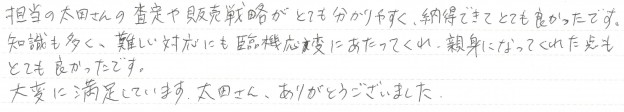 担当の太田さんの査定や販売戦略がとても分かりやすく、納得できてとても良かったです。
知識も多く、難しい対応にも臨機応変にあたってくれ、親身になってくれた点も
とても良かったです。
大変に満足しています。太田さん、ありがとうございました。